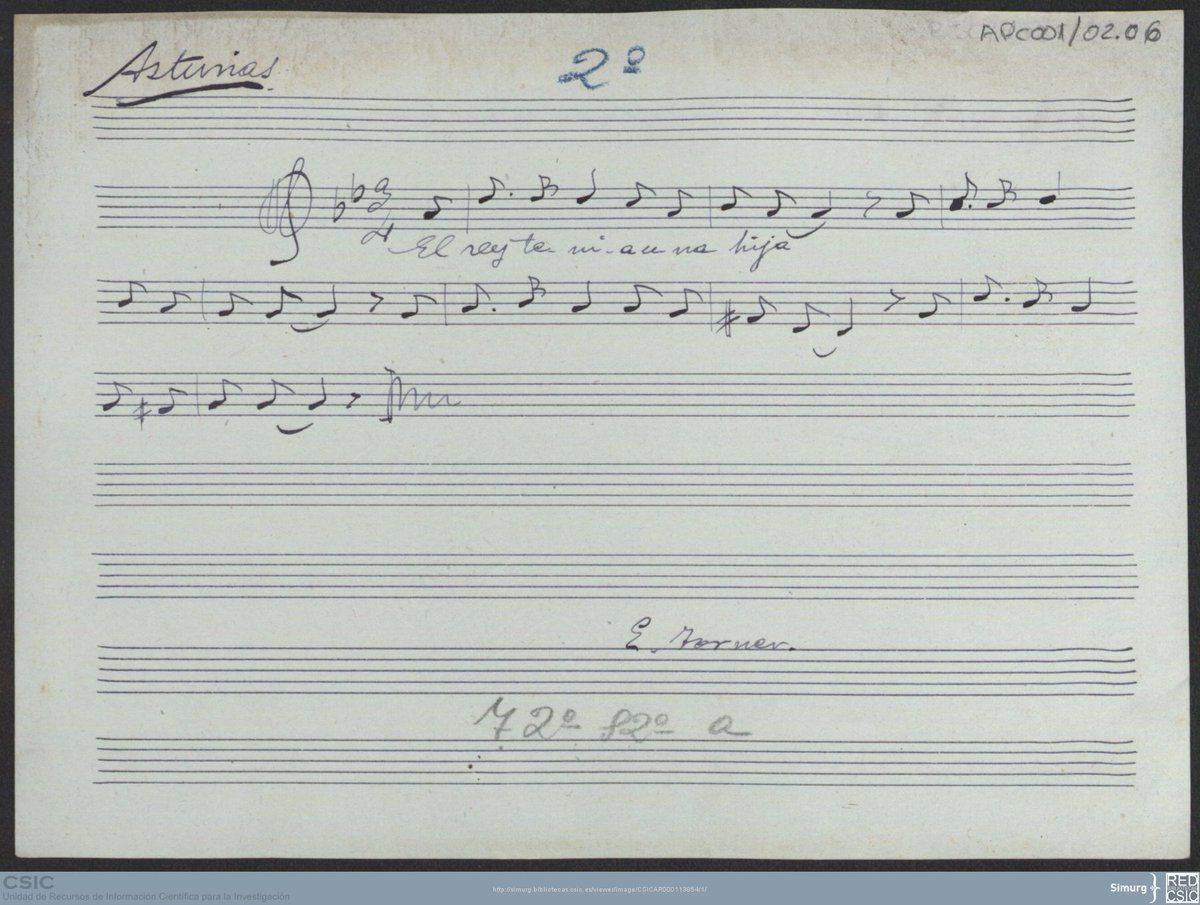 APC001/02.06
Asturias
2º
3
4
El rey te-ni-a u na hija
E. Torner.
72º 82º a
CSIC
Unidad de Recursos de Información Científica para la Investigación
http://simurg.bibliotecas.csic.es/viewer/image/CSICAR000113854/1/
Simurg
RED
CSIC